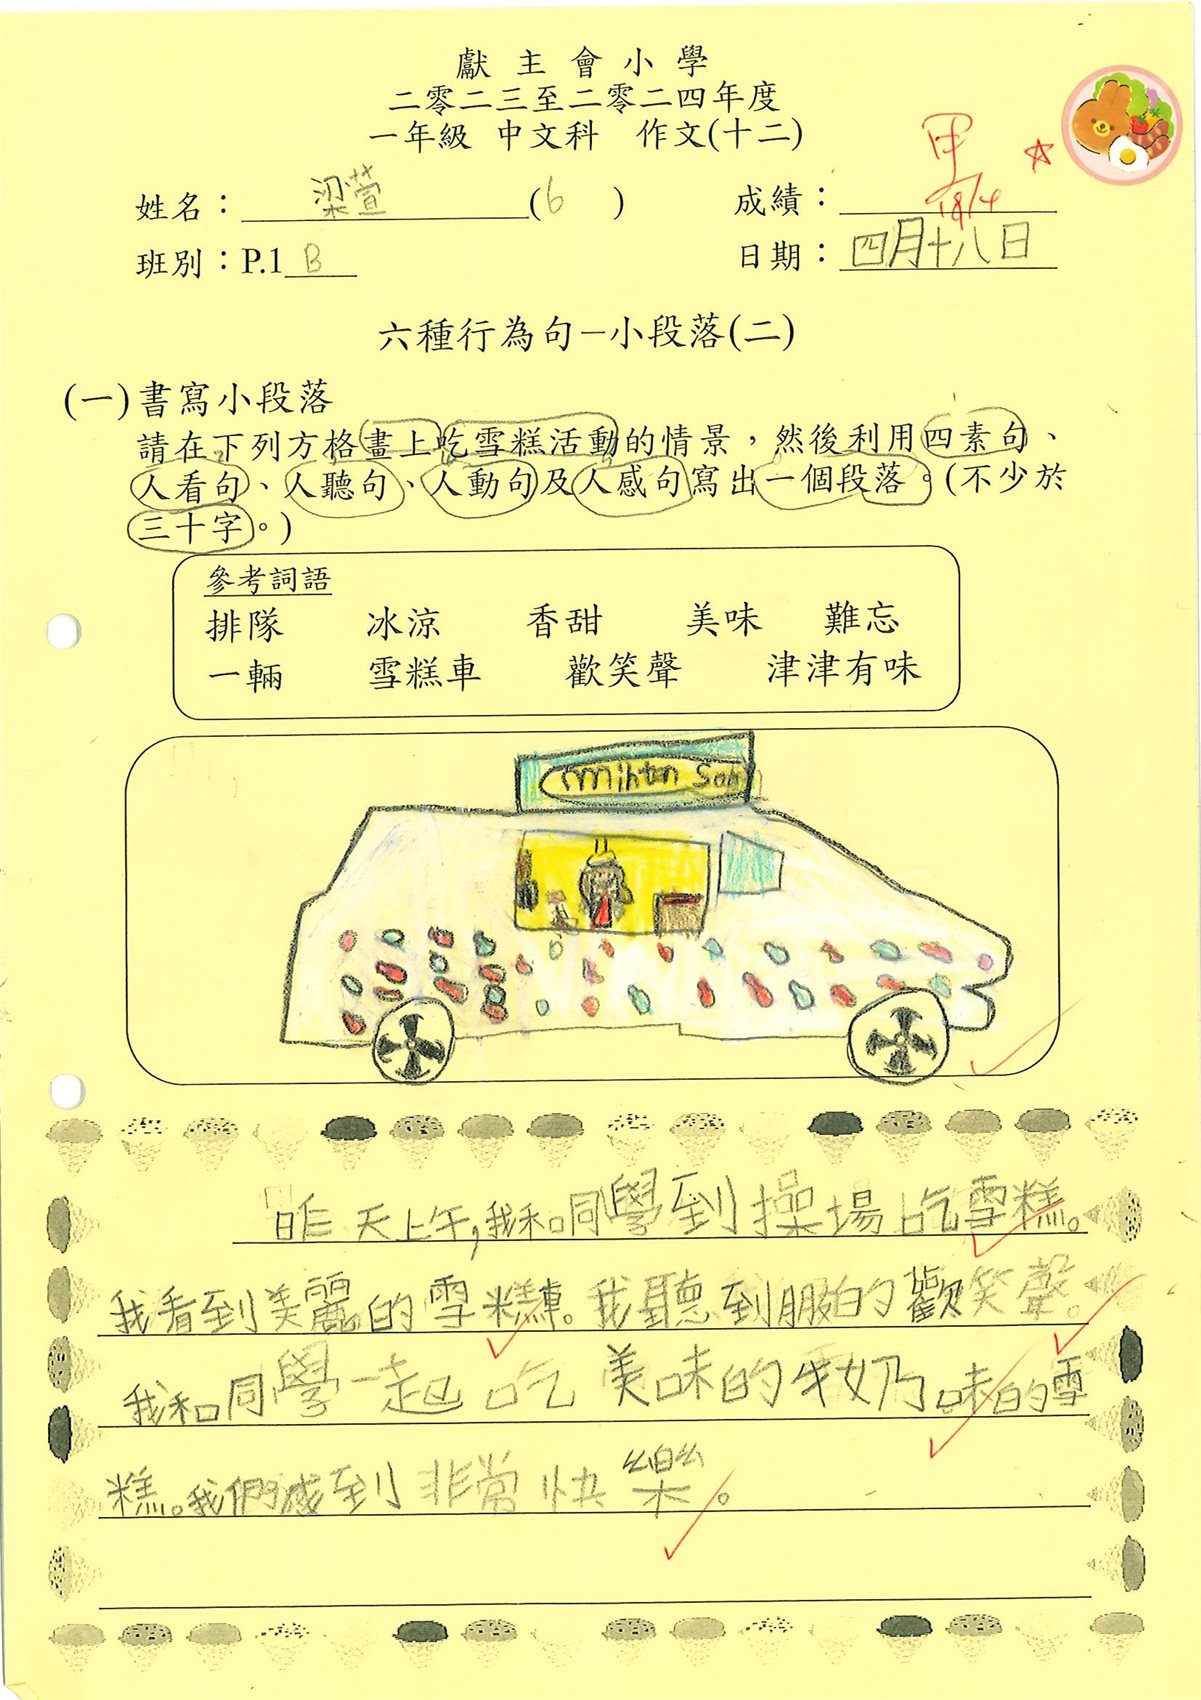 獻主會小學
二零二三至二零二四年度
一年級 中文科 作文(十二)
甲
18/4
姓名：梁萱(6)
成績：
班別：P.1 B
日期：四月十八日
六種行為句－小段落(二)
(一)書寫小段落
請在下列方格畫上吃雪糕活動的情景，然後利用四素句、
人看句、人聽句、人動句及人感句寫出一個段落。(不少於
三十字。)
參考詞語
排隊 冰涼 香甜 美味 難忘
一輛 雪糕車 歡笑聲 津津有味
昨天上午，我和同學到操場吃雪糕。
我看到美麗的雪糕車。我聽到的歡笑聲。
我和同學一起吃美味的牛奶味的雪
糕。我們感到非常快樂。